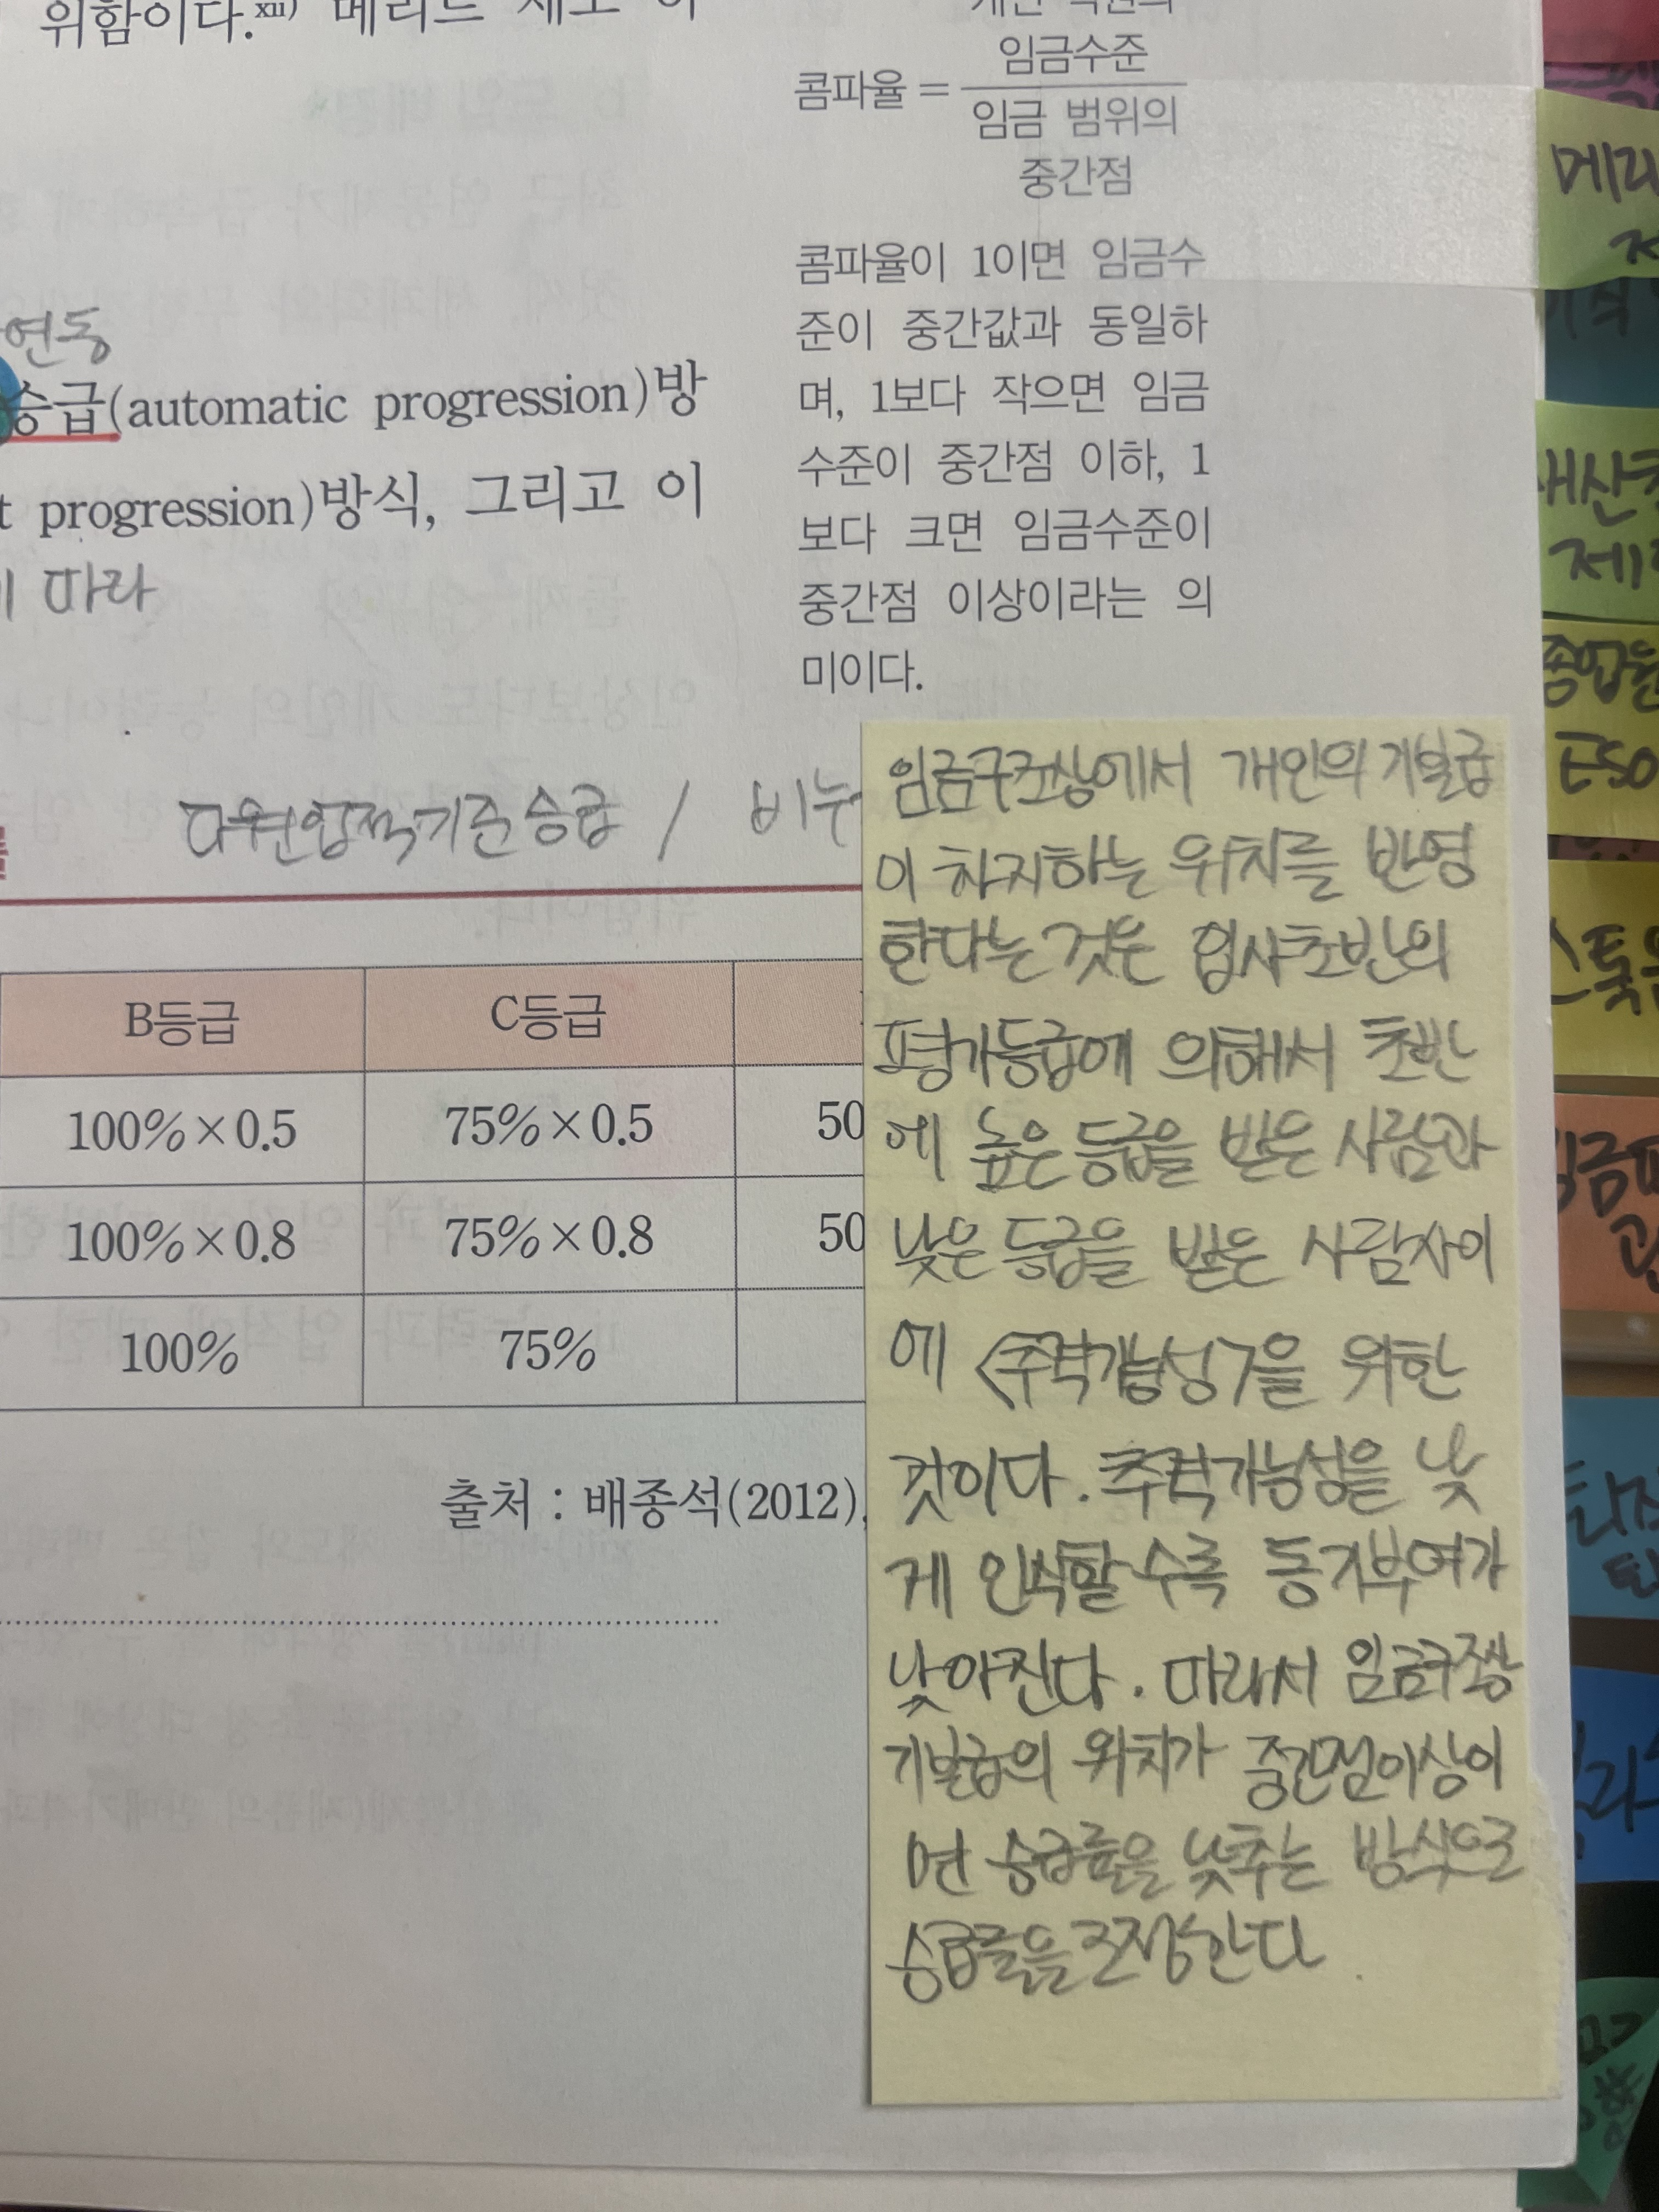 위함이다.xii) 메리트
임금수준
콤파율 =
임금 범위의
중간점
콤파율이 1이면 임금수
준이 중간값과 동일하
며, 1보다 작으면 임금
수준이 중간점 이하, 1
보다 크면 임금수준이
중간점 이상이라는 의
미이다.
연동
승급(automatic progression)방
t progression)방식, 그리고 이
따라
기준승급 / 비누
B등급 C등급
100%×0.5 75%×0.5 50
100%×0.8 75%×0.8 50
100% 75%
출처 : 배종석(2012),
임금구조상에서 개인의 기본급
이 차지하는 위치를 반영
한다는 것은 입사초반의
평가등급에 의해서 초반
에 높은 등급을 받은 사람과
낮은 등급을 받은 사람사이
에 <추격가능성>을 위한
것이다. 추격가능성을 낮
게 인식할수록 동기부여가
낮아진다. 따라서 임금구조상
기본급의 위치가 중간점이상이
면 승급률을 낮추는 방식으로
승급률을 조정한다
메리
종업원
ESO